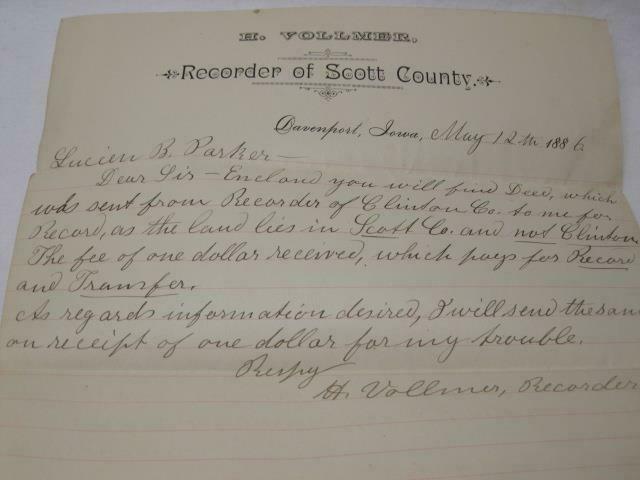 H. VOLLMER,
Recorder of Scott County.
Davenport, Iowa, May 12th 1886
Lucien B. Parker—
Dear Sir — Enclosed you will find Deed, which
was sent from Recorder of Clinton Co. to me for
Record, as the land lies in Scott Co. and not Clinton
The fee of one dollar received, which pays for Record
and Transfer.
As regards information desired, I will send the sam
on receipt of one dollar for my trouble.
Respy
H. Vollmer, Recorder